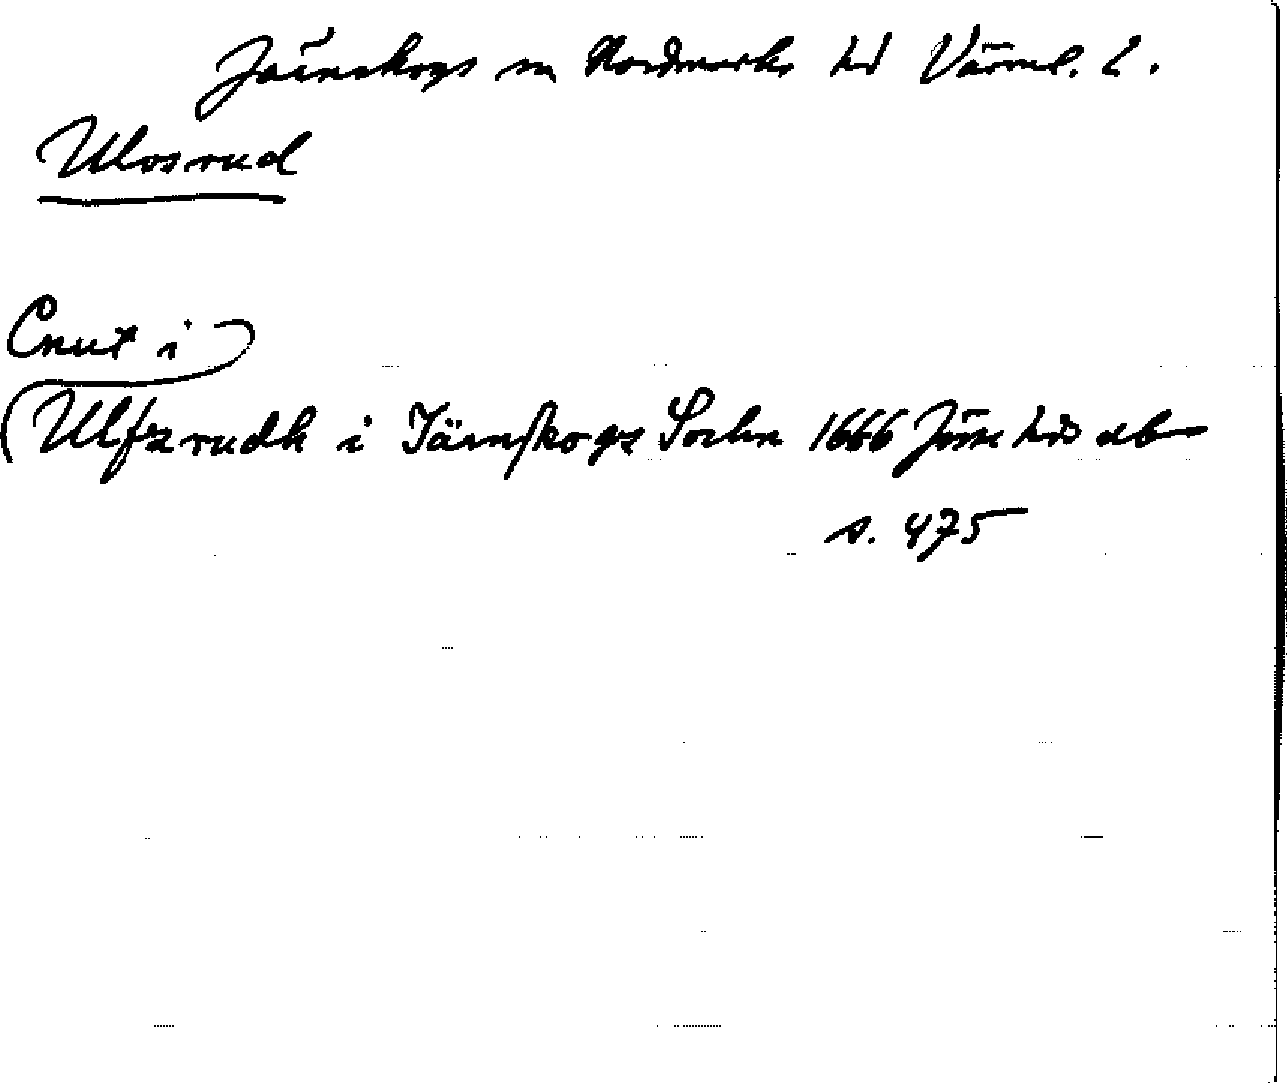 Järnskogs sn Nordmarks hd Värml. l.
Ulvsrud
Cnut i
Ulfzrudh i Järnskogz Sochn 1666 Jösse hrds db
s. 475